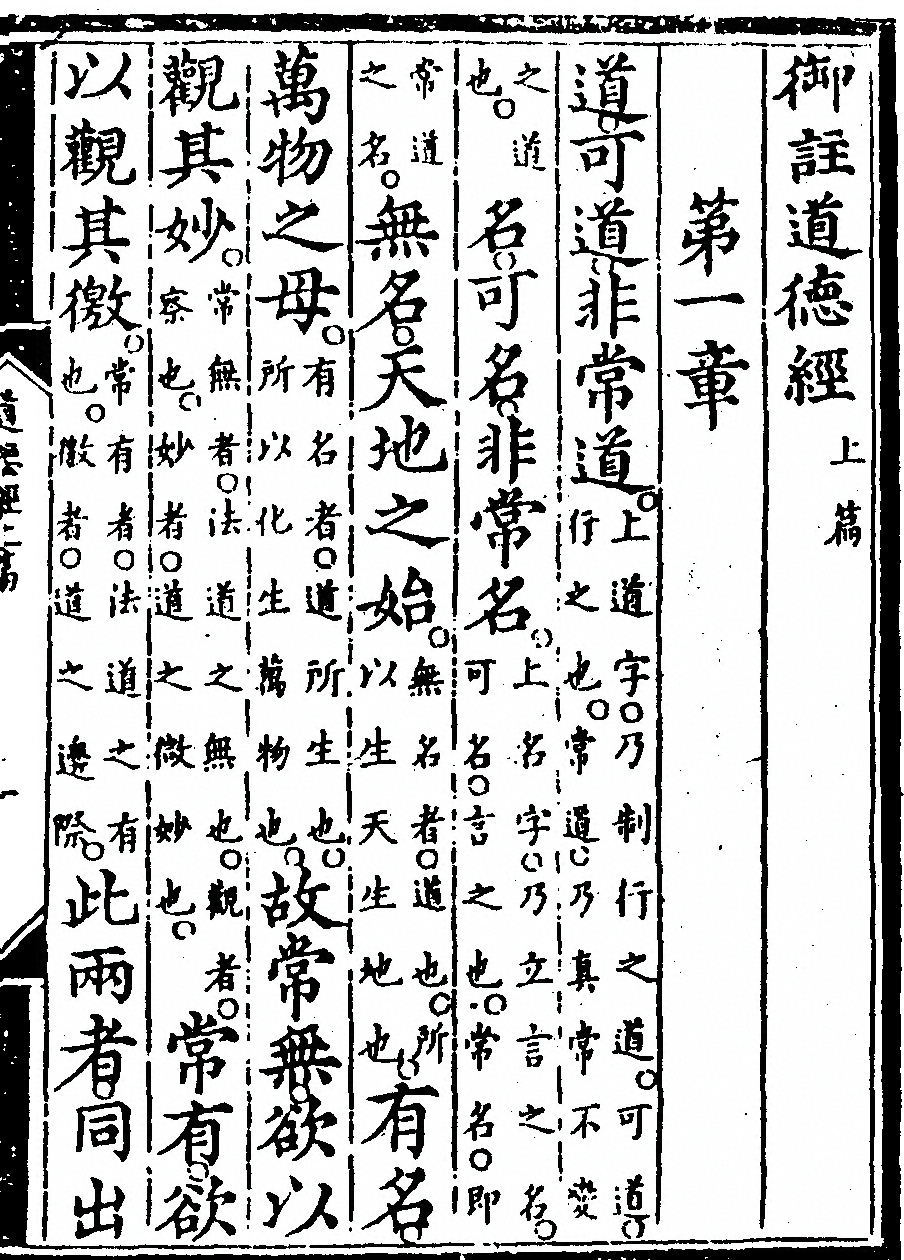 御註道德經 上篇
第一章
道。可道。非常道。上道字。乃制行之道。可道。行之也。常道。乃真常不變
之道也。名。可名。非常名。上名字。乃立言之名。可名。言之也。常名。即
常道之名。無名。天地之始。無名者。道也。所以生天生地也。有名。
萬物之母。有名者。道所生也。所以化生萬物也。故常無。欲以
觀其妙。常無者。法道之無也。觀者。察也。妙者。道之微妙也。常有。欲
以觀其徼。常有者。法道之有也。徼者。道之邊際。此兩者。同出
道德經上篇 一